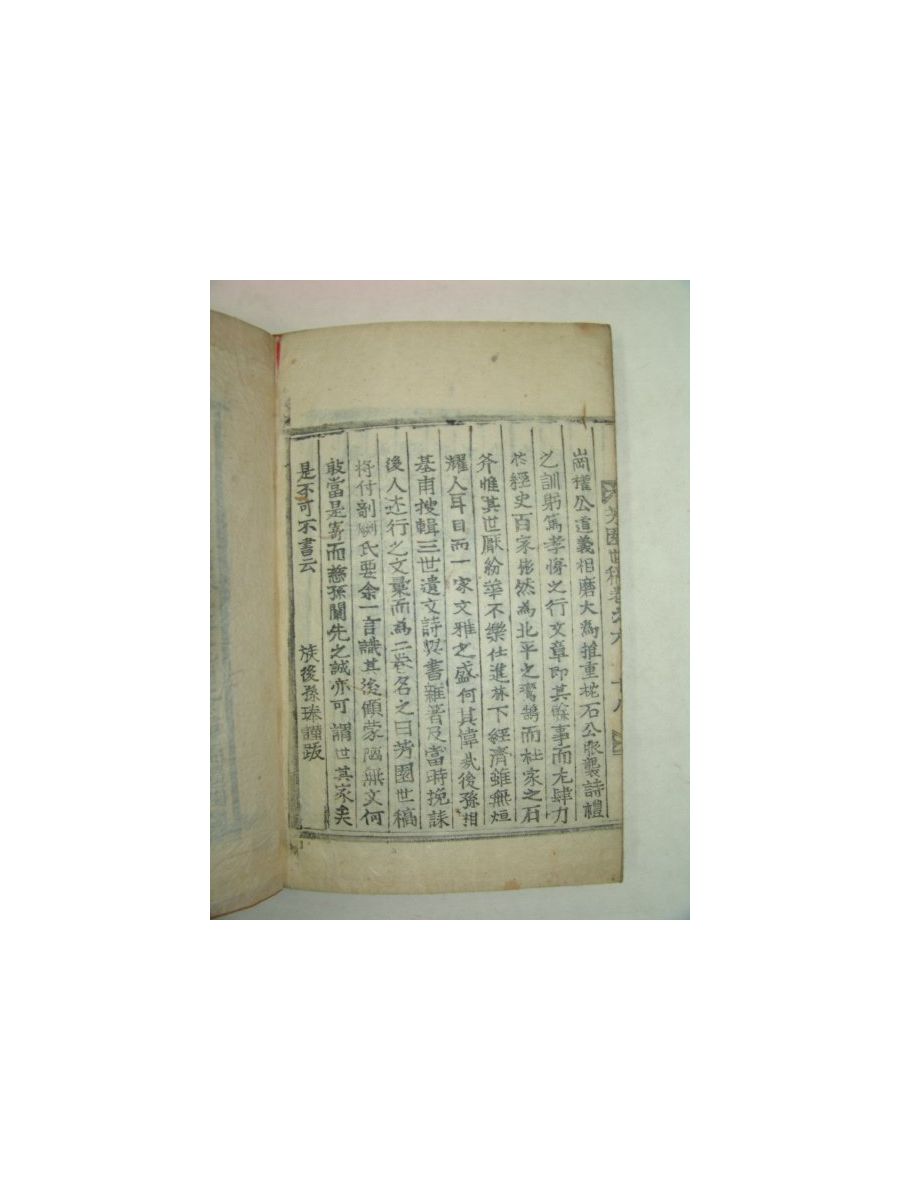 芳園世稿卷之六 十八
崗權公道義相磨大爲推重枕石公眾襲詩禮
之訓躬篤孝悌之行文章即其餘事而尤肆力
於經史百家彬然為北平之鸞鵠而杜家之石
斧惟其世厭紛華不樂仕進林下經濟雖無烜
耀人耳目而一家文雅之盛何其偉哉後孫相
基甫搜輯三世遺文詩與書雜著及當時挽誄
後人述行之文彙而為二卷名之曰芳園世稿
將付剞劂氏要余一言識其後傾蒙陋無文何
敢當是寄而慈孫闡先之誠亦可謂世其家矣
是不可不書云 族後孫瑧謹跋